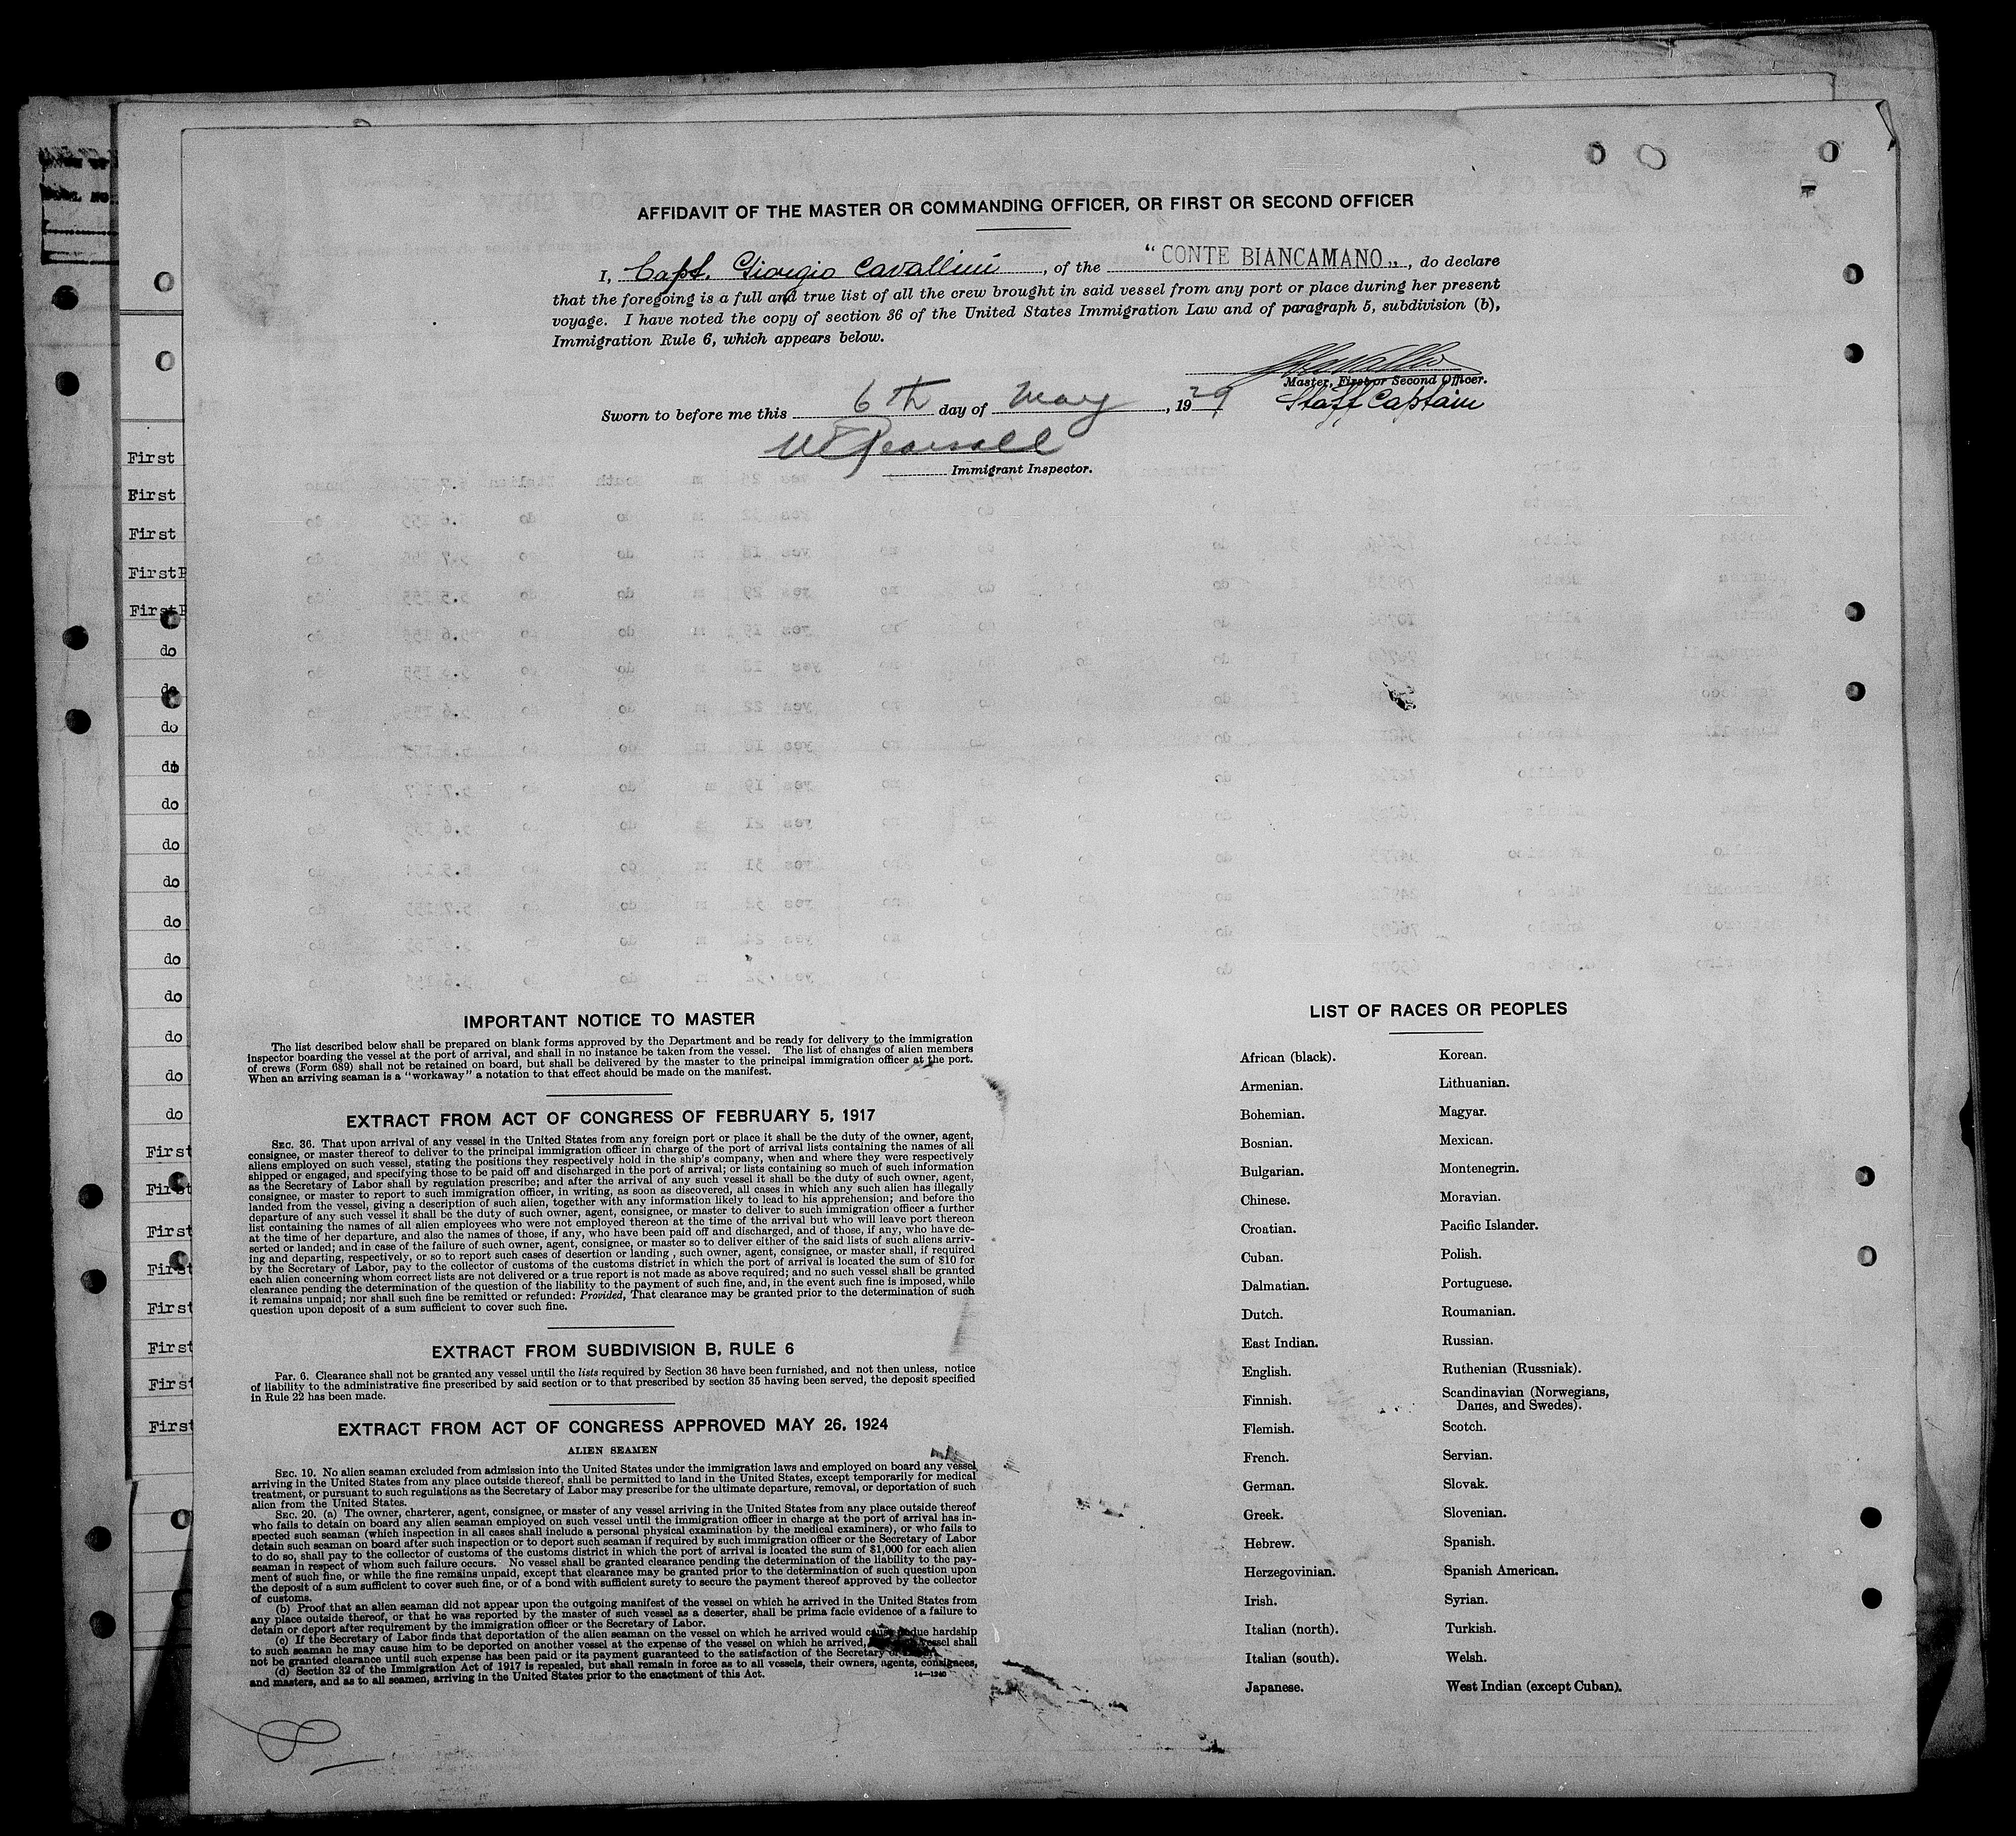 AFFIDAVIT OF THE MASTER OR COMMANDING OFFICER, OR FIRST OR SECOND OFFICER
I, Capt. Giorgio Cavallini, of the "CONTE BIANCAMANO„, do declare
that the foregoing is a full and true list of all the crew brought in said vessel from any port or place during her present
voyage. I have noted the copy of section 36 of the United States Immigration Law and of paragraph 5, subdivision (b),
Immigration Rule 6, which appears below.
Master, First or Second Officer.
Staff Captain
Sworn to before me this 6th day of May, 1929
Immigrant Inspector.
First
First
First
First
First
do
do
do
do
do
do
do
do
do
do
do
do
do
First
First
First
First
First
First
First
First
IMPORTANT NOTICE TO MASTER
The list described below shall be prepared on blank forms approved by the Department and be ready for delivery to the immigration
inspector boarding the vessel at the port of arrival, and shall in no instance be taken from the vessel. The list of changes of alien members
of crews (Form 689) shall not be retained on board, but shall be delivered by the master to the principal immigration officer at the port.
When an arriving seaman is a "workaway" a notation to that effect should be made on the manifest.
EXTRACT FROM ACT OF CONGRESS OF FEBRUARY 5, 1917
SEC. 36. That upon arrival of any vessel in the United States from any foreign port or place it shall be the duty of the owner, agent,
consignee, or master thereof to deliver to the principal immigration officer in charge of the port of arrival lists containing the names of all
aliens employed on such vessel, stating the positions they respectively hold in the ship's company, when and where they were respectively
shipped or engaged, and specifying those to be paid off and discharged in the port of arrival; or lists containing so much of such information
as the Secretary of Labor shall by regulation prescribe; and after the arrival of any such vessel it shall be the duty of such owner, agent,
consignee, or master to report to such immigration officer, in writing, as soon as discovered, all cases in which any such alien has illegally
landed from the vessel, giving a description of such alien, together with any information likely to lead to his apprehension; and before the
departure of any such vessel it shall be the duty of such owner, agent, consignee, or master to deliver to such immigration officer a further
list containing the names of all alien employees who were not employed thereon at the time of the arrival but who will leave port thereon
at the time of her departure, and also the names of those, if any, who have been paid off and discharged, and of those, if any, who have de-
serted or landed; and in case of the failure of such owner, agent, consignee, or master so to deliver either of the said lists of such aliens arriv-
ing and departing, respectively, or so to report such cases of desertion or landing , such owner, agent, consignee, or master shall, if required
by the Secretary of Labor, pay to the collector of customs of the customs district in which the port of arrival is located the sum of $10 for
each alien concerning whom correct lists are not delivered or a true report is not made as above required; and no such vessel shall be granted
clearance pending the determination of the question of the liability to the payment of such fine, and, in the event such fine is imposed, while
it remains unpaid; nor shall such fine be remitted or refunded: Provided, That clearance may be granted prior to the determination of such
question upon deposit of a sum sufficient to cover such fine.
EXTRACT FROM SUBDIVISION B, RULE 6
Par. 6. Clearance shall not be granted any vessel until the lists required by Section 36 have been furnished, and not then unless, notice
of liability to the administrative fine prescribed by said section or to that prescribed by section 35 having been served, the deposit specified
in Rule 22 has been made.
EXTRACT FROM ACT OF CONGRESS APPROVED MAY 26, 1924
ALIEN SEAMEN
SEC. 19. No alien seaman excluded from admission into the United States under the immigration laws and employed on board any vessel
arriving in the United States from any place outside thereof, shall be permitted to land in the United States, except temporarily for medical
treatment, or pursuant to such regulations as the Secretary of Labor may prescribe for the ultimate departure, removal, or deportation of such
alien from the United States.
SEC. 20. (a) The owner, charterer, agent, consignee, or master of any vessel arriving in the United States from any place outside thereof
who fails to detain on board any alien seaman employed on such vessel until the immigration officer in charge at the port of arrival has in-
spected such seaman (which inspection in all cases shall include a personal physical examination by the medical examiners), or who fails to
detain such seaman on board after such inspection or to deport such seaman if required by such immigration officer or the Secretary of Labor
to do so, shall pay to the collector of customs of the customs district in which the port of arrival is located the sum of $1,000 for each alien
seaman in respect of whom such failure occurs. No vessel shall be granted clearance pending the determination of the liability to the pay-
ment of such fine, or while the fine remains unpaid, except that clearance may be granted prior to the determination of such question upon
the deposit of a sum sufficient to cover such fine, or of a bond with sufficient surety to secure the payment thereof approved by the collector
of customs.
(b) Proof that an alien seaman did not appear upon the outgoing manifest of the vessel on which he arrived in the United States from
any place outside thereof, or that he was reported by the master of such vessel as a deserter, shall be prima facie evidence of a failure to
detain or deport after requirement by the immigration officer or the Secretary of Labor.
(c) If the Secretary of Labor finds that deportation of the alien seaman on the vessel on which he arrived would cause undue hardship
to such seaman he may cause him to be deported on another vessel at the expense of the vessel on which he arrived, vessel shall
not be granted clearance until such expense has been paid or its payment guaranteed to the satisfaction of the Secretary of
(d) Section 32 of the Immigration Act of 1917 is repealed, but shall remain in force as to all vessels, their owners, agents, consignees,
and masters, and as to all seamen, arriving in the United States prior to the enactment of this Act. 14—1240
LIST OF RACES OR PEOPLES
African (black).
Armenian.
Bohemian.
Bosnian.
Bulgarian.
Chinese.
Croatian.
Cuban.
Dalmatian.
Dutch.
East Indian.
English.
Finnish.
Flemish.
French.
German.
Greek.
Hebrew.
Herzegovinian.
Irish.
Italian (north).
Italian (south).
Japanese.
Korean.
Lithuanian.
Magyar.
Mexican.
Montenegrin.
Moravian.
Pacific Islander.
Polish.
Portuguese.
Roumanian.
Russian.
Ruthenian (Russniak).
Scandinavian (Norwegians,
Danes, and Swedes).
Scotch.
Servian.
Slovak.
Slovenian.
Spanish.
Spanish American.
Syrian.
Turkish.
Welsh.
West Indian (except Cuban).